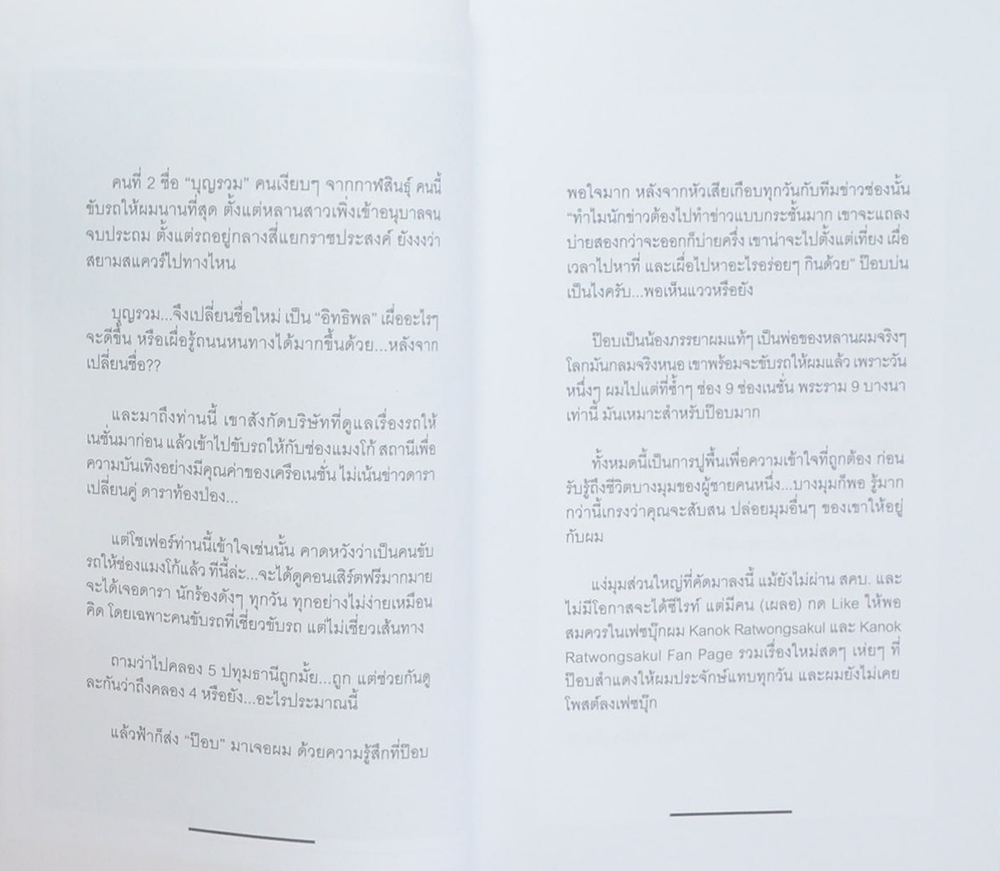 คนที่ 2 ชื่อ “บุญรวม” คนเงียบๆ จากกาฬสินธุ์ คนนี้
ขับรถให้ผมนานที่สุด ตั้งแต่หลานสาวเพิ่งเข้าอนุบาลจน
จบประถม ตั้งแต่รถอยู่กลางสี่แยกราชประสงค์ ยังงงว่า
สยามสแควร์ไปทางไหน
บุญรวม...จึงเปลี่ยนชื่อใหม่ เป็น “อิทธิพล” เผื่ออะไรๆ
จะดีขึ้น หรือเผื่อรู้ถนนหนทางได้มากขึ้นด้วย...หลังจาก
เปลี่ยนชื่อ??
และมาถึงท่านนี้ เขาสังกัดบริษัทที่ดูแลเรื่องรถให้
เนชั่นมาก่อน แล้วเข้าไปขับรถให้กับช่องแมงโก้ สถานีเพื่อ
ความบันเทิงอย่างมีคุณค่าของเครือเนชั่น ไม่เน้นข่าวดารา
เปลี่ยนคู่ ดาราท้องป่อง...
แต่โชเฟอร์ท่านนี้เข้าใจเช่นนั้น คาดหวังว่าเป็นคนขับ
รถให้ช่องแมงโก้แล้ว ทีนี้ล่ะ...จะได้ดูคอนเสิร์ตฟรีมากมาย
จะได้เจอดารา นักร้องดังๆ ทุกวัน ทุกอย่างไม่ง่ายเหมือน
คิด โดยเฉพาะคนขับรถที่เชี่ยวขับรถ แต่ไม่เชี่ยวเส้นทาง
ถามว่าไปคลอง 5 ปทุมธานีถูกมั้ย...ถูก แต่ช่วยกันดู
ละกันว่าถึงคลอง 4 หรือยัง...อะไรประมาณนี้
แล้วฟ้าก็ส่ง “ป๊อบ” มาเจอผม ด้วยความรู้สึกที่ป๊อบ
พอใจมาก หลังจากหัวเสียเกือบทุกวันกับทีมข่าวช่องนั้น
“ทำไมนักข่าวต้องไปทำข่าวแบบกระชั้นมาก เขาจะแถลง
บ่ายสองกว่าจะออกก็บ่ายครึ่ง เขาน่าจะไปตั้งแต่เที่ยง เผื่อ
เวลาไปหาที่ และเผื่อไปหาอะไรอร่อยๆ กินด้วย” ป๊อบบ่น
เป็นไงครับ...พอเห็นแววหรือยัง
ป๊อบเป็นน้องภรรยาผมแท้ๆ เป็นพ่อของหลานผมจริงๆ
โลกมันกลมจริงหนอ เขาพร้อมจะขับรถให้ผมแล้ว เพราะวัน
หนึ่งๆ ผมไปแต่ที่ซ้ำๆ ช่อง 9 ช่องเนชั่น พระราม 9 บางนา
เท่านี้ มันเหมาะสำหรับป๊อบมาก
ทั้งหมดนี้เป็นการปูพื้นเพื่อความเข้าใจที่ถูกต้อง ก่อน
รับรู้ถึงชีวิตบางมุมของผู้ชายคนหนึ่ง...บางมุมก็พอ รู้มาก
กว่านี้เกรงว่าคุณจะสับสน ปล่อยมุมอื่นๆ ของเขาให้อยู่
กับผม
แง่มุมส่วนใหญ่ที่คัดมาลงนี้ แม้ยังไม่ผ่าน สคบ. และ
ไม่มีโอกาสจะได้ซีไรท์ แต่มีคน (เผลอ) กด Like ให้พอ
สมควรในเฟซบุ๊กผม Kanok Ratwongsakul และ Kanok
Ratwongsakul Fan Page รวมเรื่องใหม่สดๆ เห่ยๆ ที่
ป๊อบสำแดงให้ผมประจักษ์แทบทุกวัน และผมยังไม่เคย
โพสต์ลงเฟซบุ๊ก